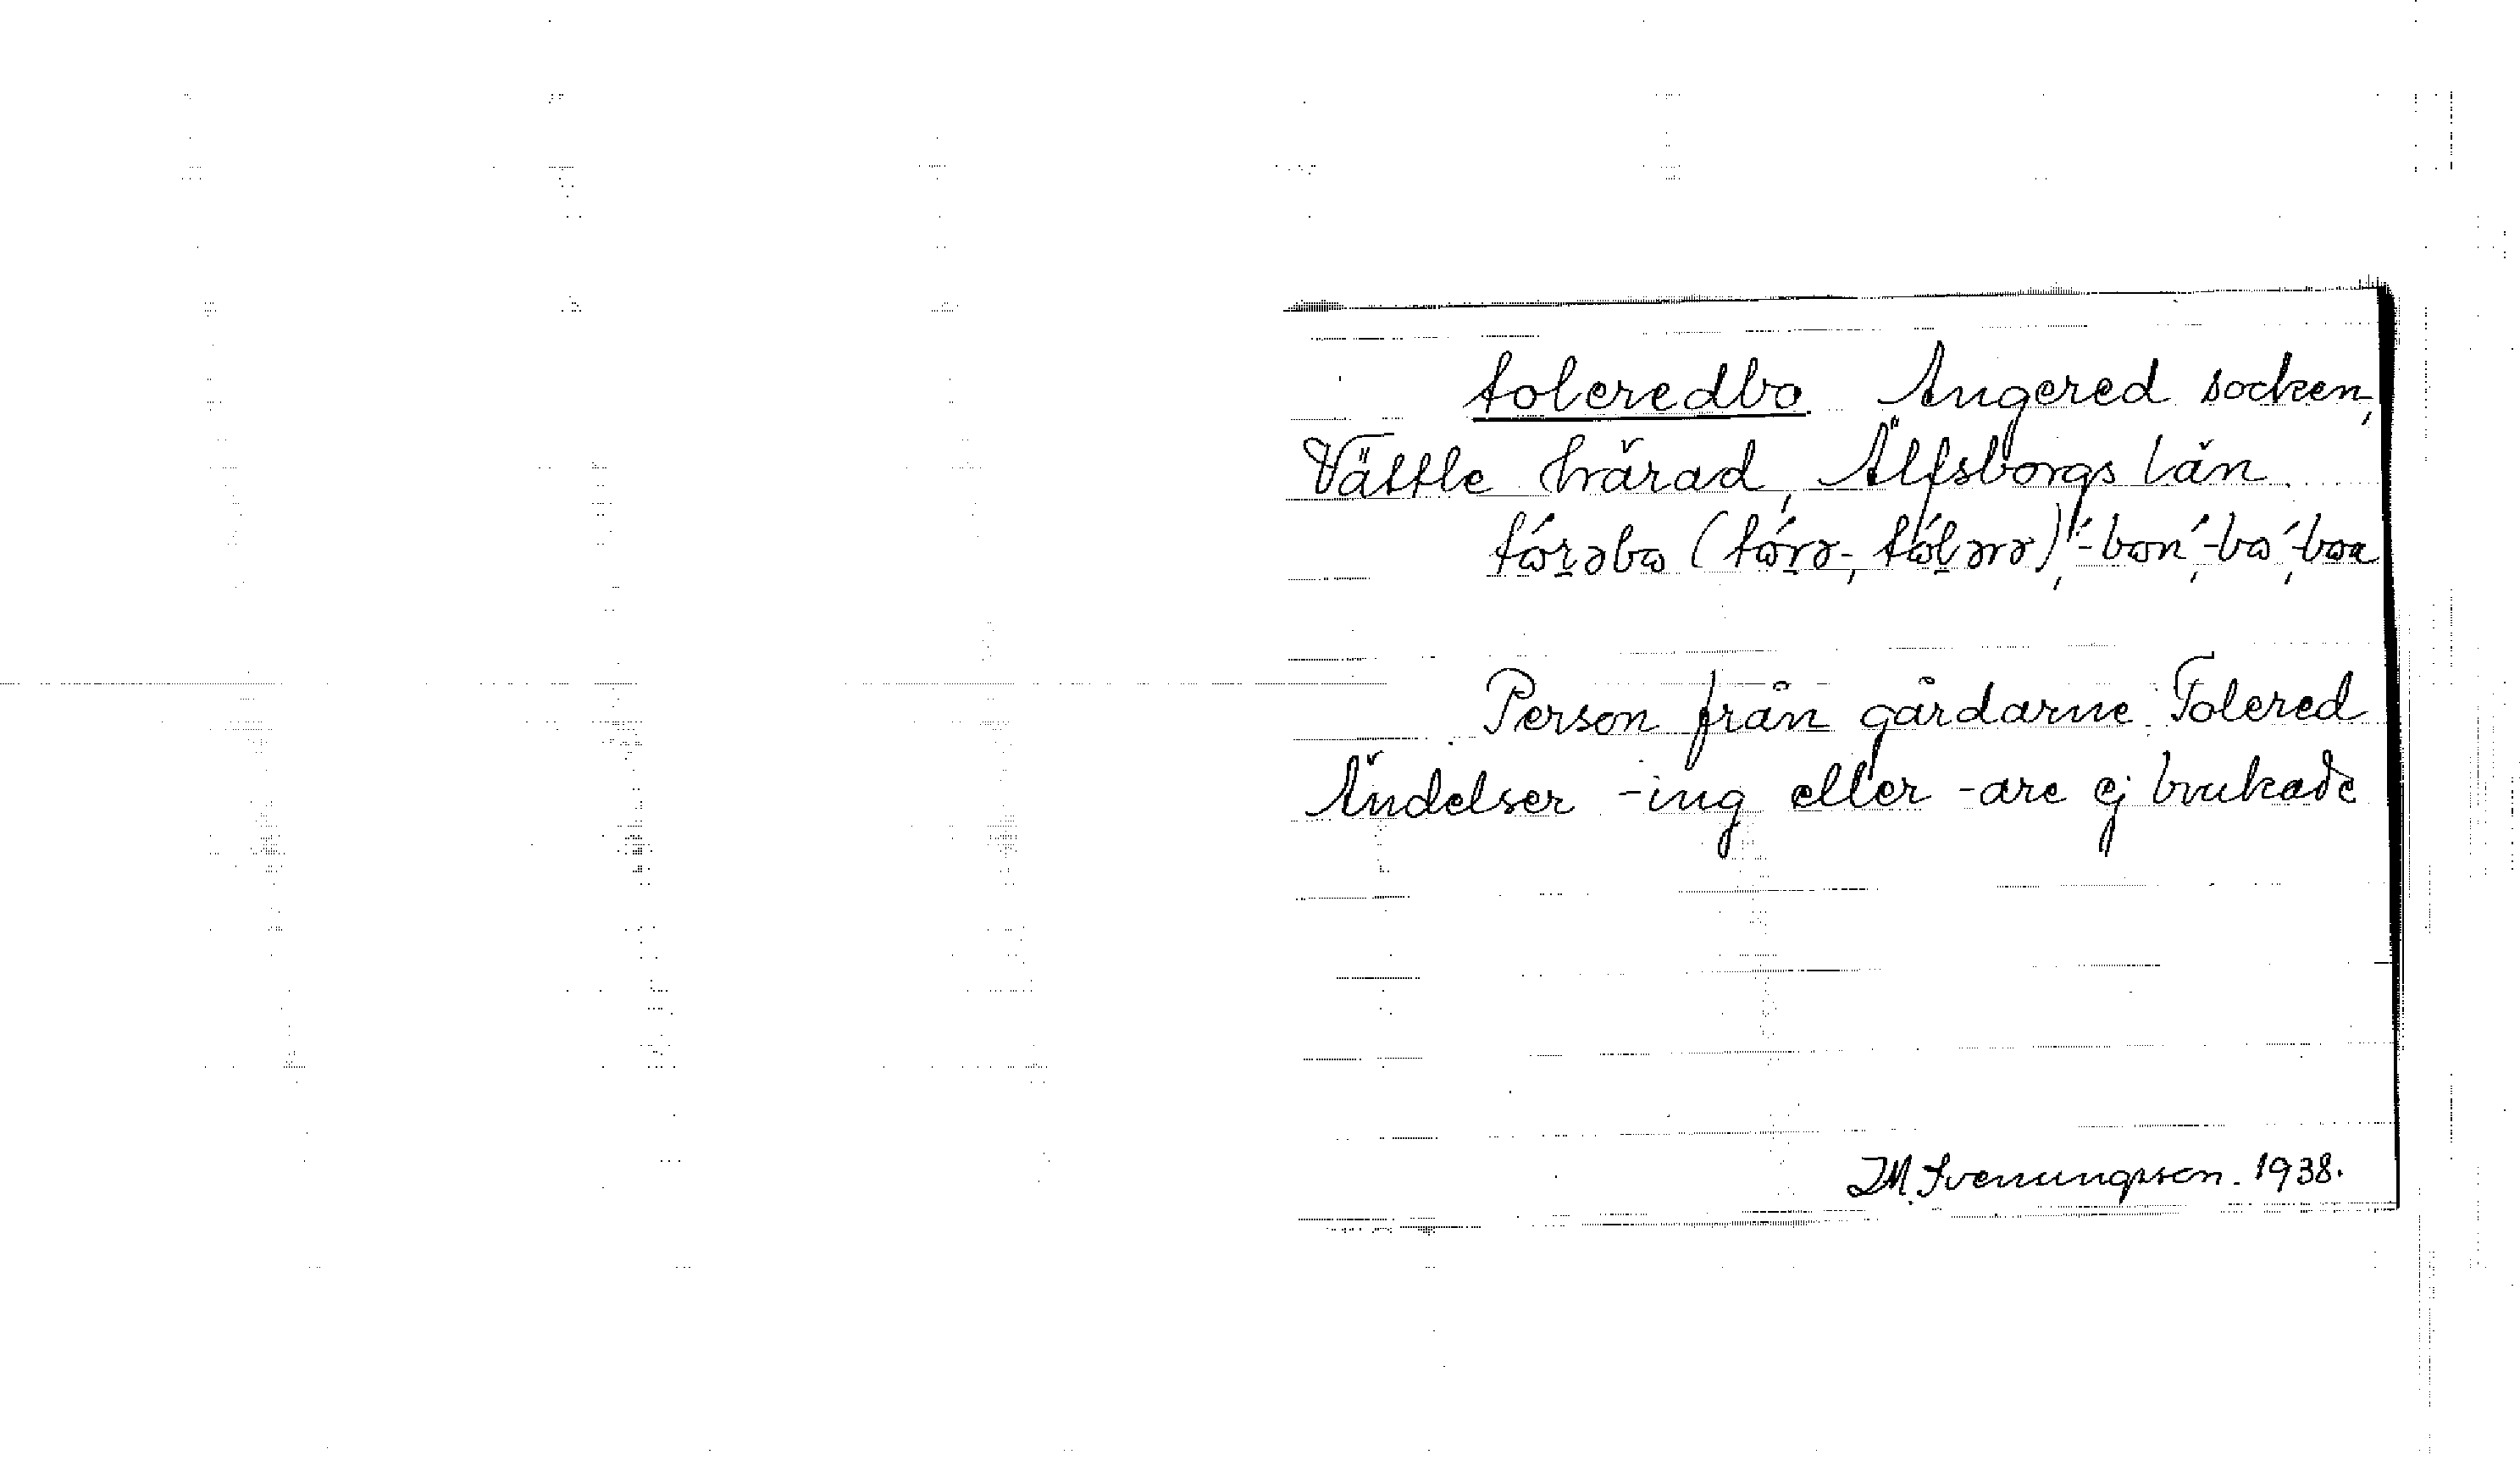 toleredbo Angered socken,
Vättle härad, Älfsborgs län
tó̤rəbω (tó̤rə-, tólərə), ́-bωn, ́-bω, ́-bωa
Person från gårdarne Tolered
Ändelser -ing eller -are ej brukade
J.M. Svenungsson. 1938.